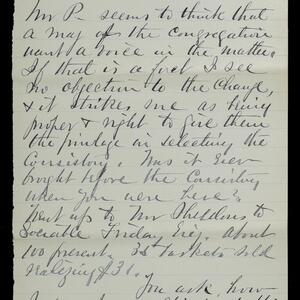 Mr P— seems to think that
a maj of the congregation
want a voice in the matter.
If that is a fact I see
no objection to the change,
& it strikes me as being
proper & right to give them
the privilege in selecting the
Consistory. Was it ever
brought before the Consistory
when you were here?
Went up to Mr Sheldons to
Sociable Friday Eve, about
100 present. 35 tickets sold
realizing $31.
You ask how